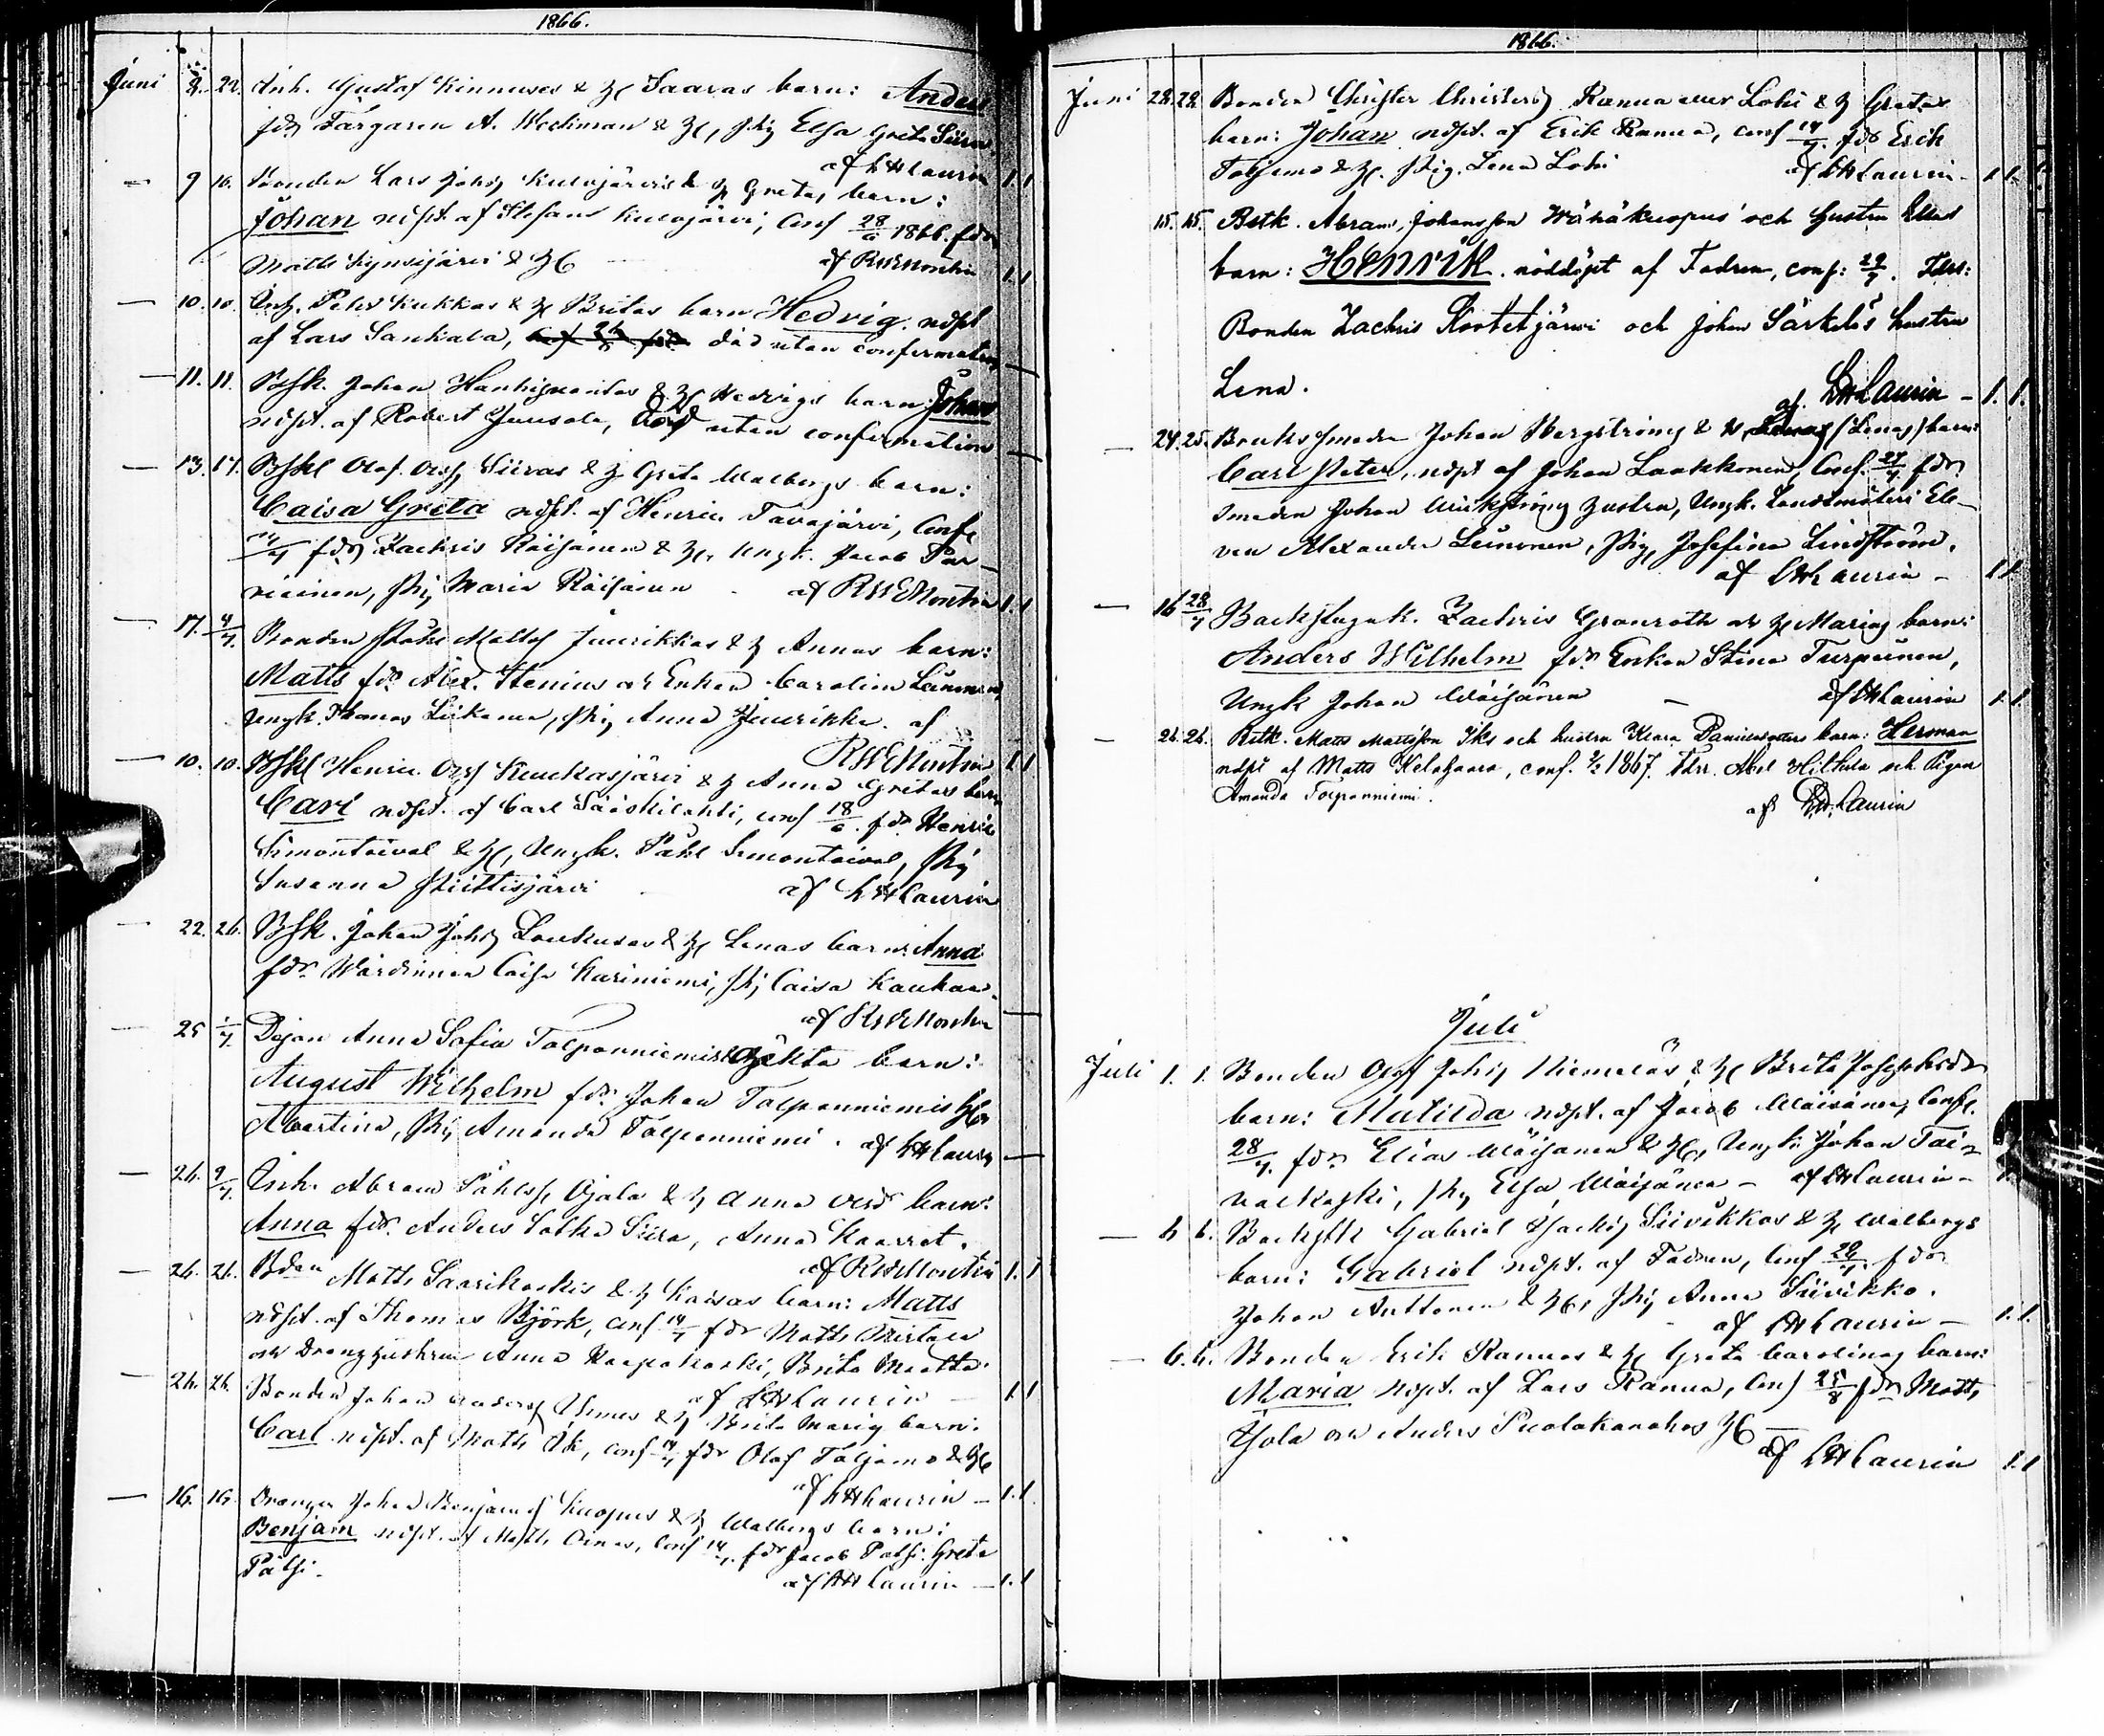 1866.
Juni 2. 22. Inh. Gustaf Kinnuses & H Saaras barn: Anders
fdr Färgaren A. Weckman & H, Pig Elsa Greta Siira
af LHLaurin 1.1
— 9 10. Bonden Lars Johsg Kulojärvis & H Gretas barn:
Johan nöpt. af Stefan Kulojärvi, Conf 28/6 1866. fdr
Matts Kynsijärvi & H af RWEMontin 1.1
— 10. 10. Inh. Petter Kukkas & H Britas barn Hedvig. nöpt
af Lars Sankala, död utan confirmation —
— 11. 11. Bfsk. Johan & H Hedvigs barn: Johan
nöpt. af Robert Juusola, död utan confirmation —
— 13. 17. Bfskl Olof Siiras & H Greta Walborgs barn:
Caisa Greta nöpt. af Henric Tavajärvi, Conf
14/7 fdr Zachris Räisänen & H, Ungk. Jacob Par-
viainen, Pig Maria Räisänen af RWEMontin 1.1
— 17. 4/7. Bonden Påhl Mattsf Juurikkas & H Annas barn:
Matts fdr Alex. Stenius och Enkan Carolina Leinonen,
Ungk. Thomas Liikanen, Pig Anna Juurikka. af
RWEMontin 1.1
— 10. 10. Bfskl Henric Kuukasjärvi & H Anna Gretas barn
Carl nöpt. af Carl Sääskilahti, conf 18/6. fdr Henric
Simontaival & H, Ungk. Påhl Simontaival, Pig
Susanna Piittisjärvi af LHLaurin
— 22. 26. Bfsk. Johan Johsg Loukusas & H Lenas barn: Anna
fdr. Wärdinnan Caisa Kariniemi, Pig Caisa
af RWEMontin —
— 25 1/7. Dejan Anna Sofia Tolpanniemis oäkta barn:
August Wilhelm fdr. Johan Tolpanniemis H
Albertina, Pig Amanda Tolpanniemi. af LHLaurin —
— 26. 9/7. Inh. Abram Påhlsf. Ojala & H Anna barn:
Anna fdr. Anders Siira, Anna Kaarret.
af RWEMontin 1.1
— 26. 26. Bdn Matts Saarikoskis & H Kaisas barn: Matts
nöpt. af Thomas Björk, Conf 14/7 fdr Matts
och Drenghustrun Anna Kaapakoski, Brita
af LHLaurin — 1.1
— 26. 26. Bonden Johan Andersf & H Brita Marig barn:
Carl nöpt. af Matts Ik, conf 14/7 fdr Olof Toljamo & H
af LHLaurin — 1.1
— 16. 16. Drengen Johan Benjamsf Kuopus & H Walborgs barn:
Benjam nöpt. af Matts Oinas, Conf 14/7. fdr Jacob Patsi. Greta
Patsi. af LHLaurin — 1.1
1866.
Juni 28. 28. Bonden Christer Christersg Ranua eller Lohi & H Gretas
barn: Johan nöpt. af Erik Ranua, conf 14/7. fdr Erik
Toljamo & H. Pig. Lena Lohi af LHLaurin — 1.1.
15. 15. Bstk. Abram Johansson Wähäkuopus' och hustru Ellas
barn: Henrik. nöddöpt af Fadren, conf: 29/7. Fdrs:
Bonden Zachris Kootetjärvi och Johan Särkelös hustru
Lena. af. LHLaurin — 1.1.
— 24. 25. Bruks smeden Johan Bergströmg & H (Lenas) barn:
Carl Peter, nöpt af Johan Laakkonen, Conf. 27/7 fdr
Smeden Johan hustru, Ungk. Landtmäteri Ele-
ven Alexander Leinonen, Pig Josefina Lindström.
af LHLaurin — 1.1
— 16 28/7 Backstuguk. Zachris Granroth och H Marias barn:
Anders Wilhelm fdr Enkan Stina Turpeinen,
Ungk Johan Wäisänen — af LHLaurin 1.1
— 26. 26. Bstk. Matts Mattsson Iks och hustru Klara Danielsdotters barn: Herman
nöpt af Matts Kelahaara, conf. 1867. Fdrr. Abel Hilkula och Pigan
Amanda Tolpanniemi. af LHLaurin
Juli
Juli 1. 1. Bonden Olof Johsg Niemelös & H Brita Josephsdr
barn: Matilda nöpt. af Jacob Wäisänen, Conf.
28/7. fdr Elias Wäisänen & H, Ungk: Johan Tai-
valkoski, Pig Elsa Wäisänen — af LHLaurin —
— 6 6. Backstk Gabriel Siivikkos & H Walborgs
barn: Gabriel nöpt. af Fadren, Conf 29/7. fdr
Johan Anttonen & H, Pig Anna Siivikko.
af LHLaurin — 1.1.
— 6. 6. Bonden Erik Ranuas & H Greta Carolinas barn:
Maria nöpt. af Lars Ranua, Conf 25/8 fdr Matts
Yola och Anders Puolakanahos H —
af LHLaurin 1.1